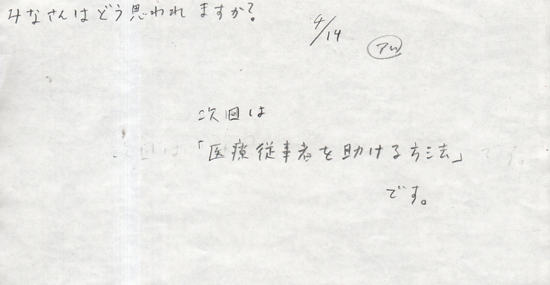 みなさんはどう思われますか?
4/14
次回は
「医療従事者を助ける方法」
です。